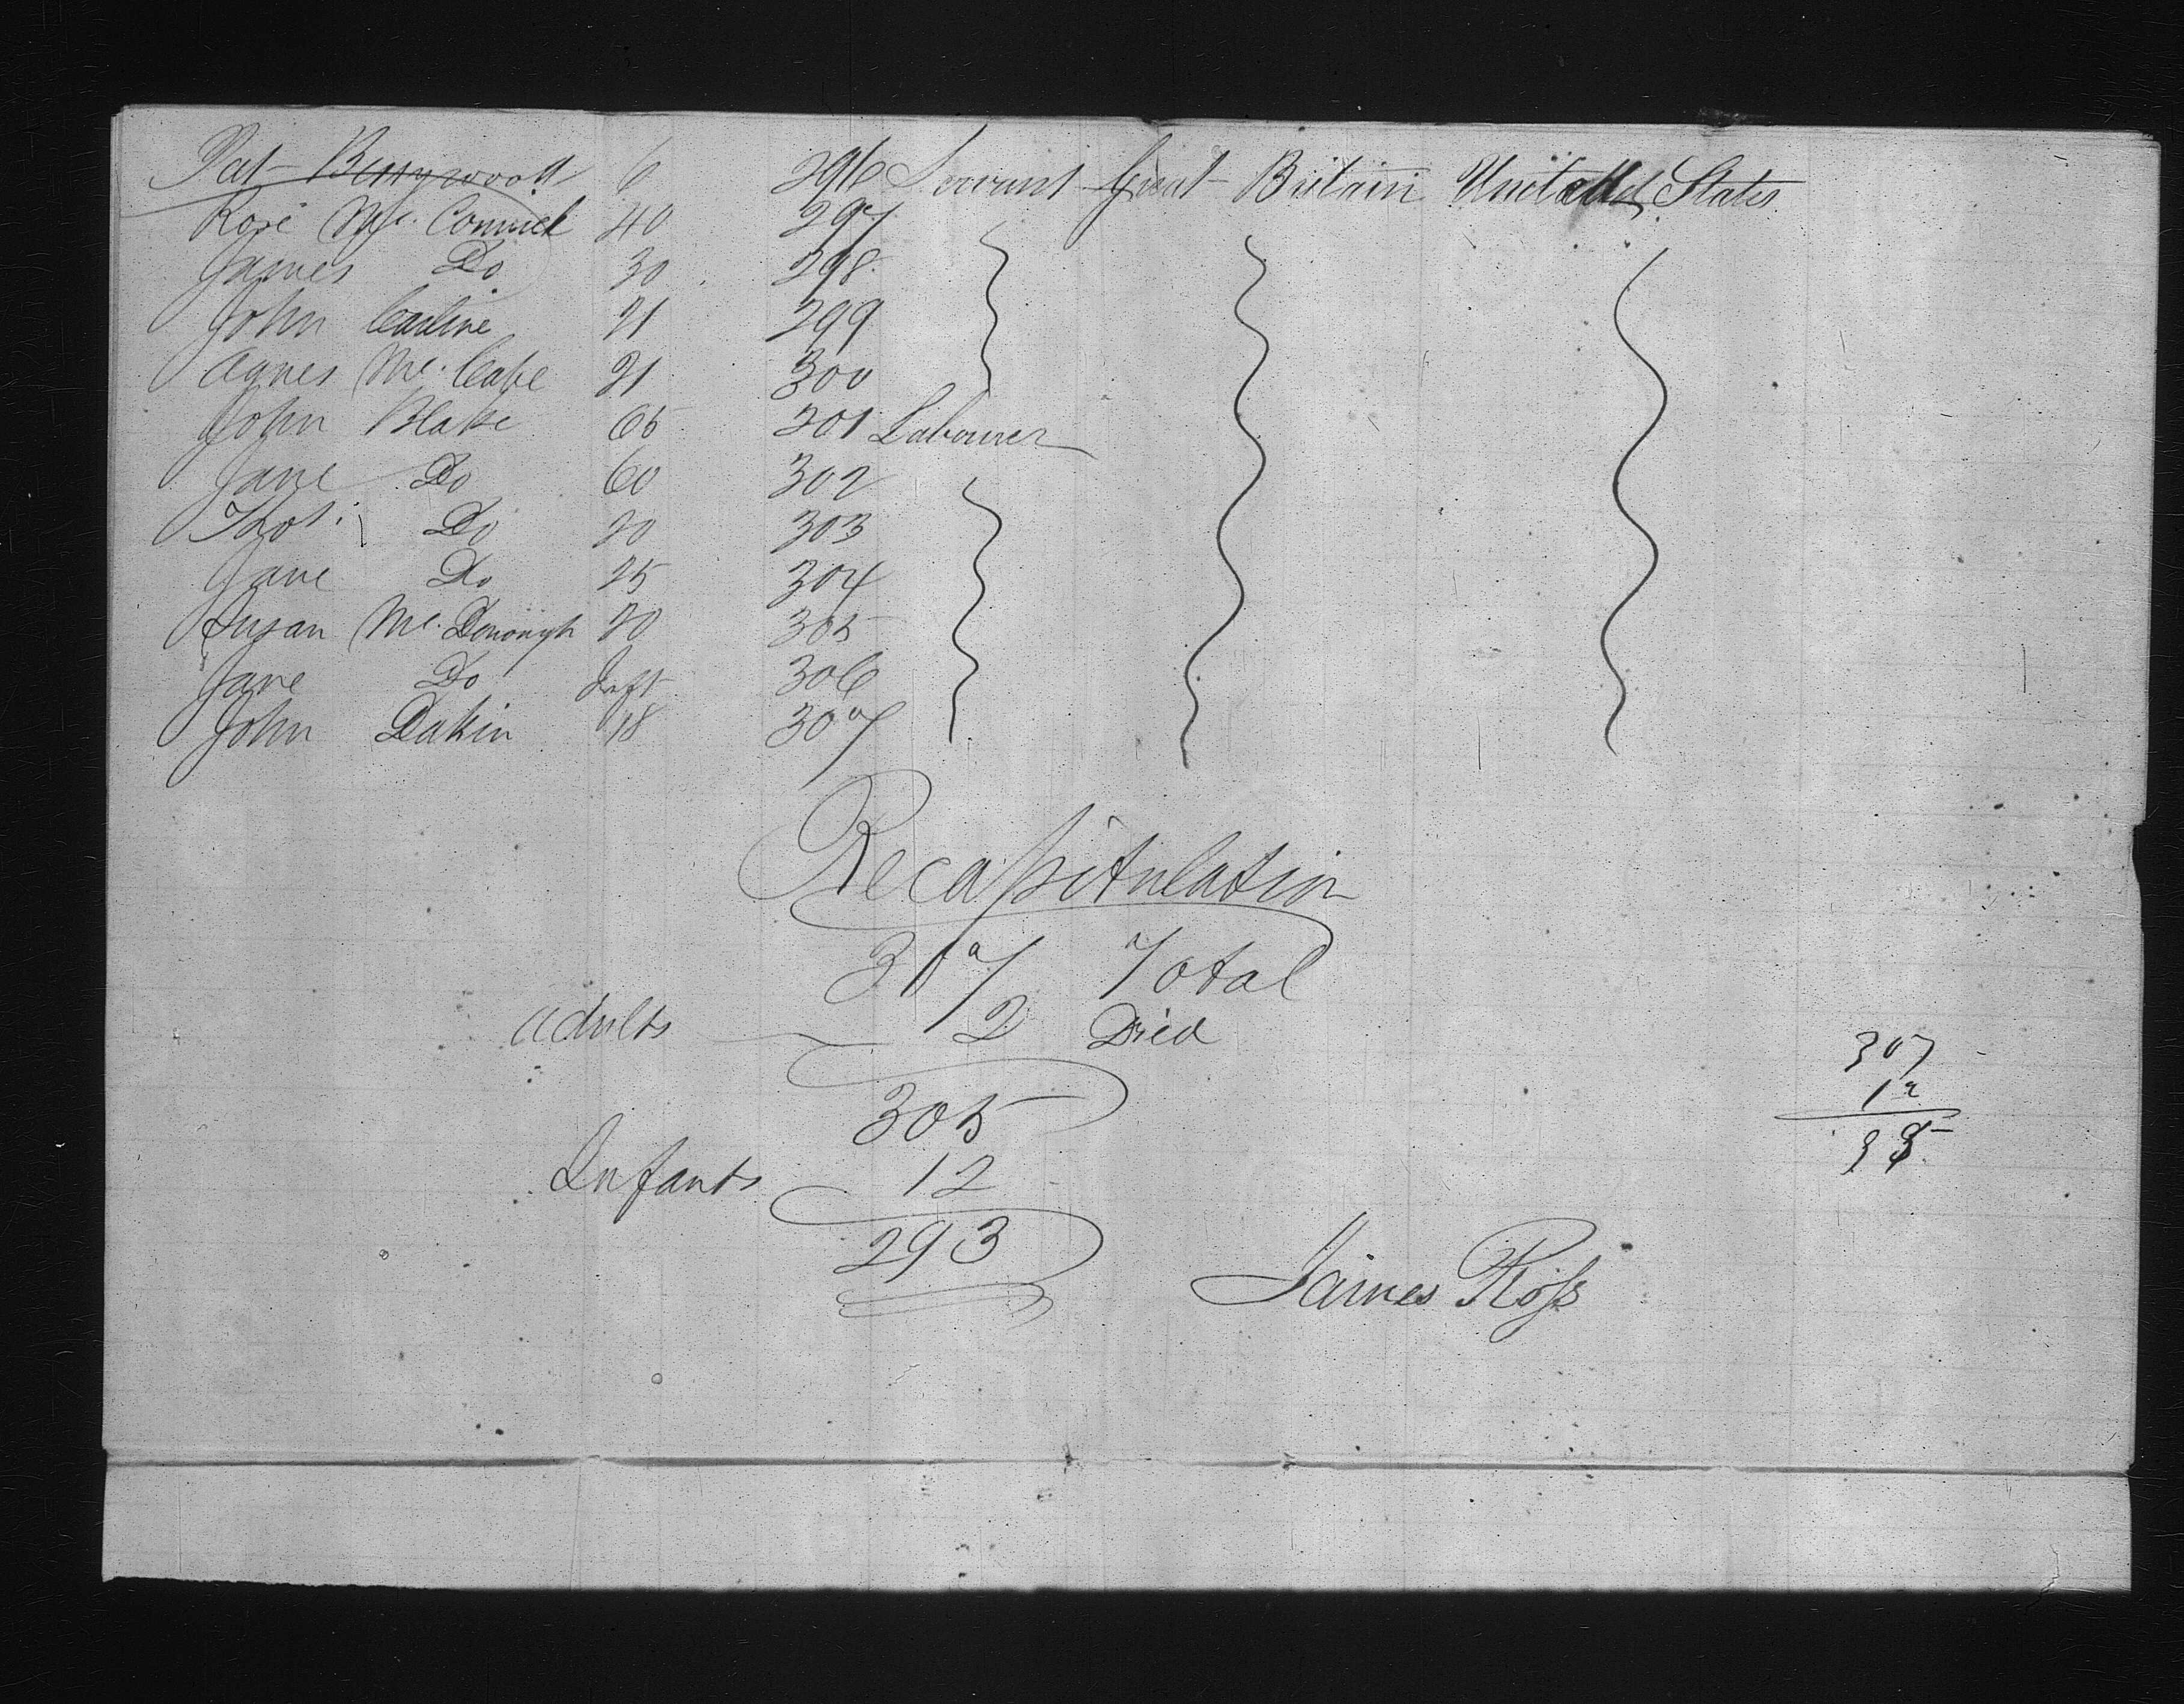 Pat Berrywood 6 296 Servant Great Britain United States
Rose Mc. Cormick 40 297
James Do 30 298
John Carline 21 299
Agnes Mc. Cabe 21 300
John Blake 65 301 Labourer
Jane Do 60 302
Thos. Do 20 303
Jane Do 25 304
Susan Mc. Donough 20 305
Jane Do Inft 306
John Dakin 18 307
Recapitulation
307 Total
adults 2 Died
305
Infants 12
293
307
12
James Ross